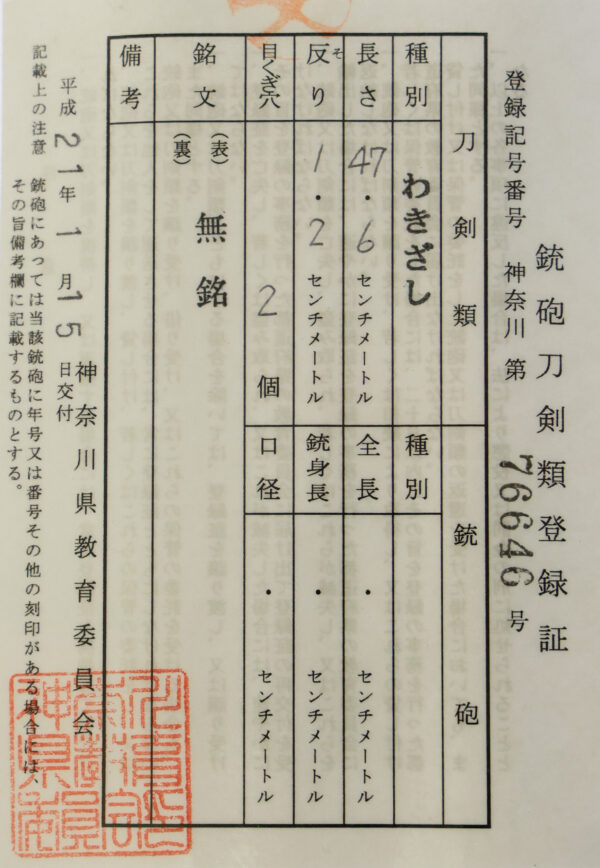 銃砲刀剣類登録証
登録記号番号 神奈川 第 76646 号
刀剣類
銃砲
種別 わきざし
種別
長さ 47・6センチメートル
全長 ・ センチメートル
反り 1・2センチメートル
そ
銃身長 ・ センチメートル
目くぎ穴 2個
口径 ・ センチメートル
銘文 (表) 無銘
(裏)
備考
神奈川県教育委員会
平成21年1月15日交付
記載上の注意 銃砲にあっては当該銃砲に年号又は番号その他の刻印がある場合には、
その旨備考欄に記載するものとする。